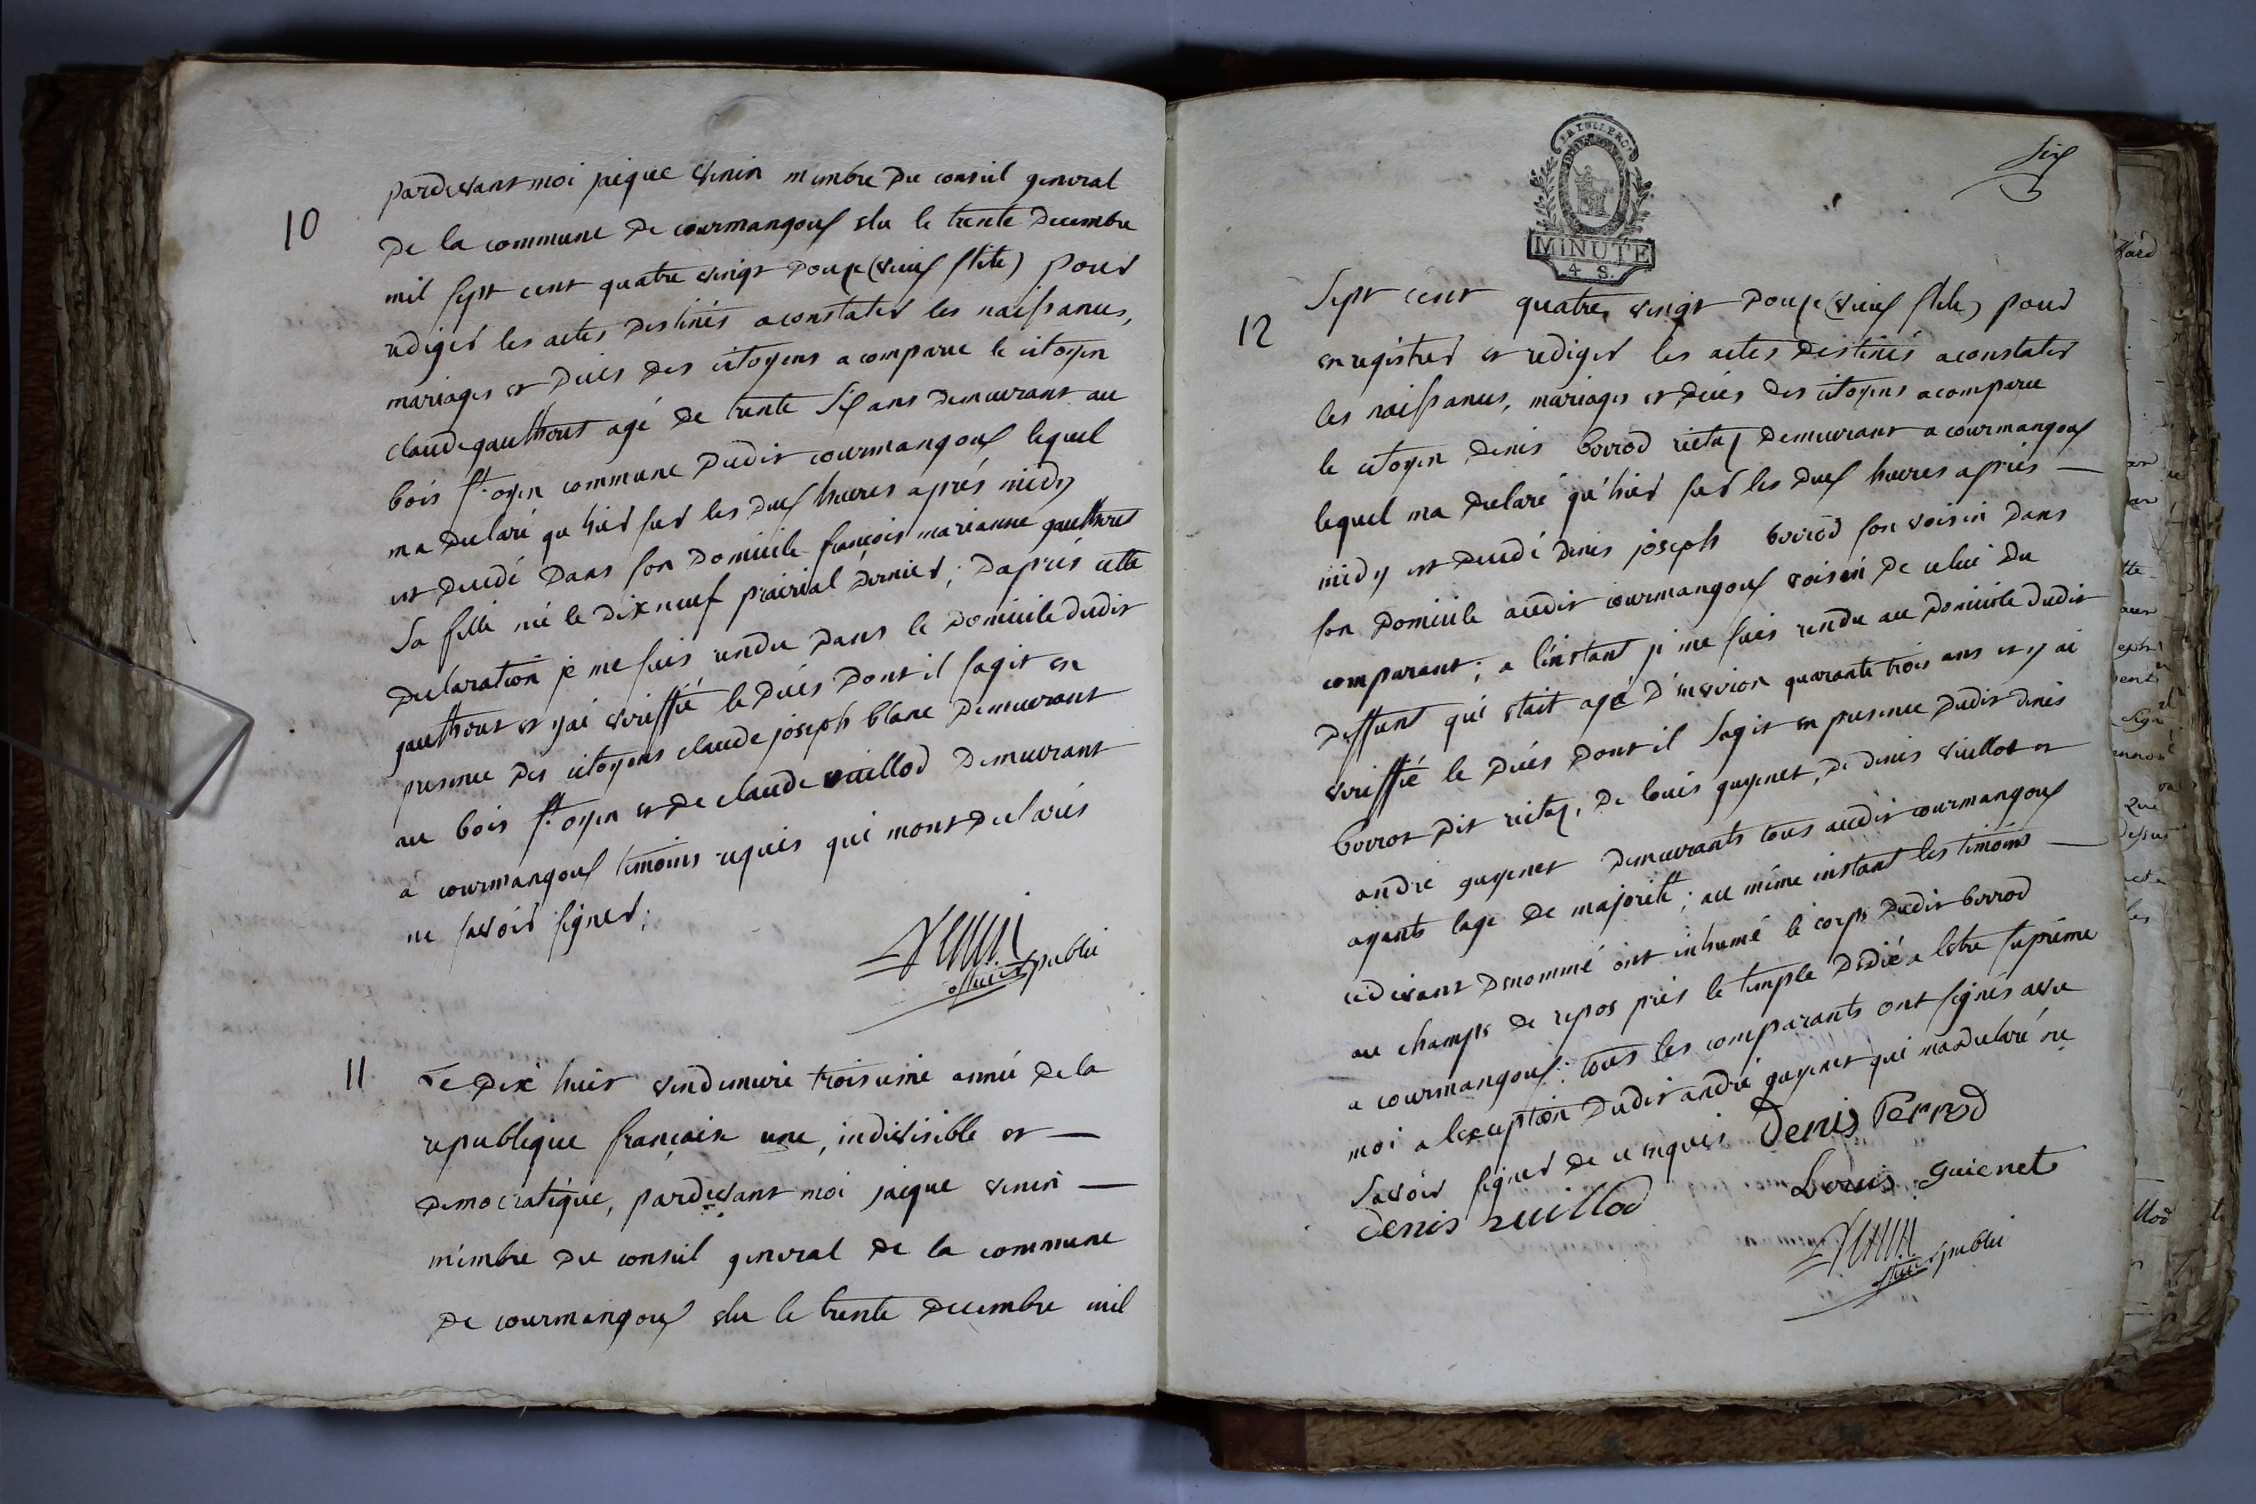 10
pardevant moi jacque venin membre du conseil general
de la commune de courmangoux elu le trente decembre
mil sept cent quatre vingt douze (vieux stile) pour
rediger les actes destinés a constater les naissances,
mariages et décès des citoyens a comparu le citoyen
claude gautheret agé de trente six ans demeurant au
bois st. oyen commune dudit courmangoux lequel
ma declaré qu hier sur les deux heures aprés midy
est decedé dans son domicile françois marianne gautheret
sa fille né le dix neuf prairial dernier; daprés cette
declaration je me suis rendu dans le domicile dudit
gautheret et y ai veriffié le décés dont il sagit en
presence des citoyens claude joseph blanc demeurant
au bois st. oyen et de claude vuillod demeurant
a courmangoux temoins requis qui mont declarés
ne savoir signer;
Venin
officier public
11
Le dix huit vendemiere troisieme année de la
republique françaïse une, indivisible et —
democratique, pardevant moi jacque venin —
membre du conseil general de la commune
de courmangoux elu le trente decembre mil
LA LOI LE ROI
MINUTE
4 S.
Six
12
Sept cent quatre vingt douze (vieux stile) pour
enregistrer et rediger les actes destinés a constater
les naissances, mariages et décés des citoyens a comparu
le citoyen denis borrod rictaz demeurant a courmangoux
lequel ma declaré qu'hier sur les deux heures aprés —
midy est decedé denis joseph borrod son voisin dans
son domicile audit courmangoux voisin de celui du
comparant; a l'instant je me suis rendu au domicile dudit
deffunt qui etait agé d'environ quarante trois ans et y ai
veriffié le décés dont il sagit en presence dudit denis
borrot dit rictaz, de louis guyenet, de denis vuillot et
andré guyenet demeurants tous audit courmangoux
ayants lage de majorité; au même instant les temoins —
cidevant denommé ont inhumé le corps dudit borrod
au champs de repos prés le temple dedié a letre supréme
a courmangoux; tous les comparants ont signés avec
moi a lexception dudit andré guyenet qui ma declaré ne
savoir signer de ce enquis Denis Perrod
denis vuillod Louis guienet
Venin
officier public